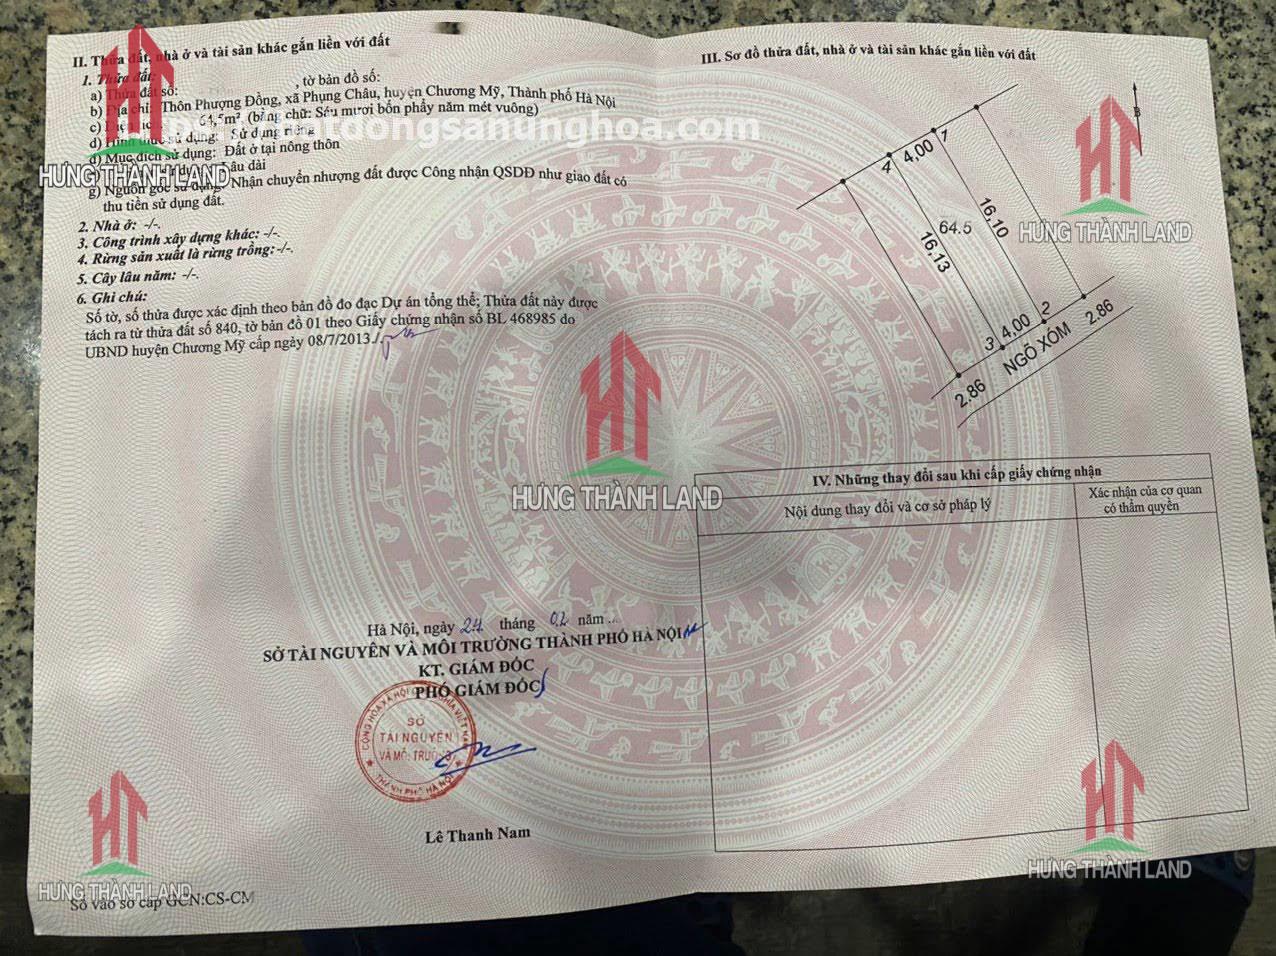 II. Thửa đất, nhà ở và tài sản khác gắn liền với đất
1. Thửa đất:
a) Thửa đất số: , tờ bản đồ số:
b) Địa chỉ: Thôn Phượng Đồng, xã Phụng Châu, huyện Chương Mỹ, Thành phố Hà Nội
c) 64,5m² (bằng chữ: Sáu mươi bốn phẩy năm mét vuông)
d) Hình thức sử dụng: Sử dụng riêng
đ) Mục đích sử dụng: Đất ở tại nông thôn
Lâu dài
g) Nguồn gốc sử dụng: Nhận chuyển nhượng đất được Công nhận QSDĐ như giao đất có
thu tiền sử dụng đất.
2. Nhà ở: -/-.
3. Công trình xây dựng khác: -/-.
4. Rừng sản xuất là rừng trồng: -/-.
5. Cây lâu năm: -/-.
6. Ghi chú:
Số tờ, số thửa được xác định theo bản đồ đo đạc Dự án tổng thể; Thửa đất này được
tách ra từ thửa đất số 840, tờ bản đồ 01 theo Giấy chứng nhận số BL 468985 do
UBND huyện Chương Mỹ cấp ngày 08/7/2013./.
Hà Nội, ngày 24 tháng 02 năm ...
SỞ TÀI NGUYÊN VÀ MÔI TRƯỜNG THÀNH PHỐ HÀ NỘI
KT. GIÁM ĐỐC
PHÓ GIÁM ĐỐC
SỞ
TÀI NGUYÊN
VÀ MÔI TRƯỜNG
THÀNH PHỐ HÀ NỘI
Lê Thanh Nam
Số vào sổ cấp GCN:CS-CM
III. Sơ đồ thửa đất, nhà ở và tài sản khác gắn liền với đất
B
1
4,00
4
16,10
64.5
16,13
2
4,00
3
2.86
NGÕ XÓM
2.86
IV. Những thay đổi sau khi cấp giấy chứng nhận
Nội dung thay đổi và cơ sở pháp lý
Xác nhận của cơ quan
có thẩm quyền
HƯNG THÀNH LAND
HƯNG THÀNH LAND
HƯNG THÀNH LAND
HƯNG THÀNH LAND
HƯNG THÀNH LAND